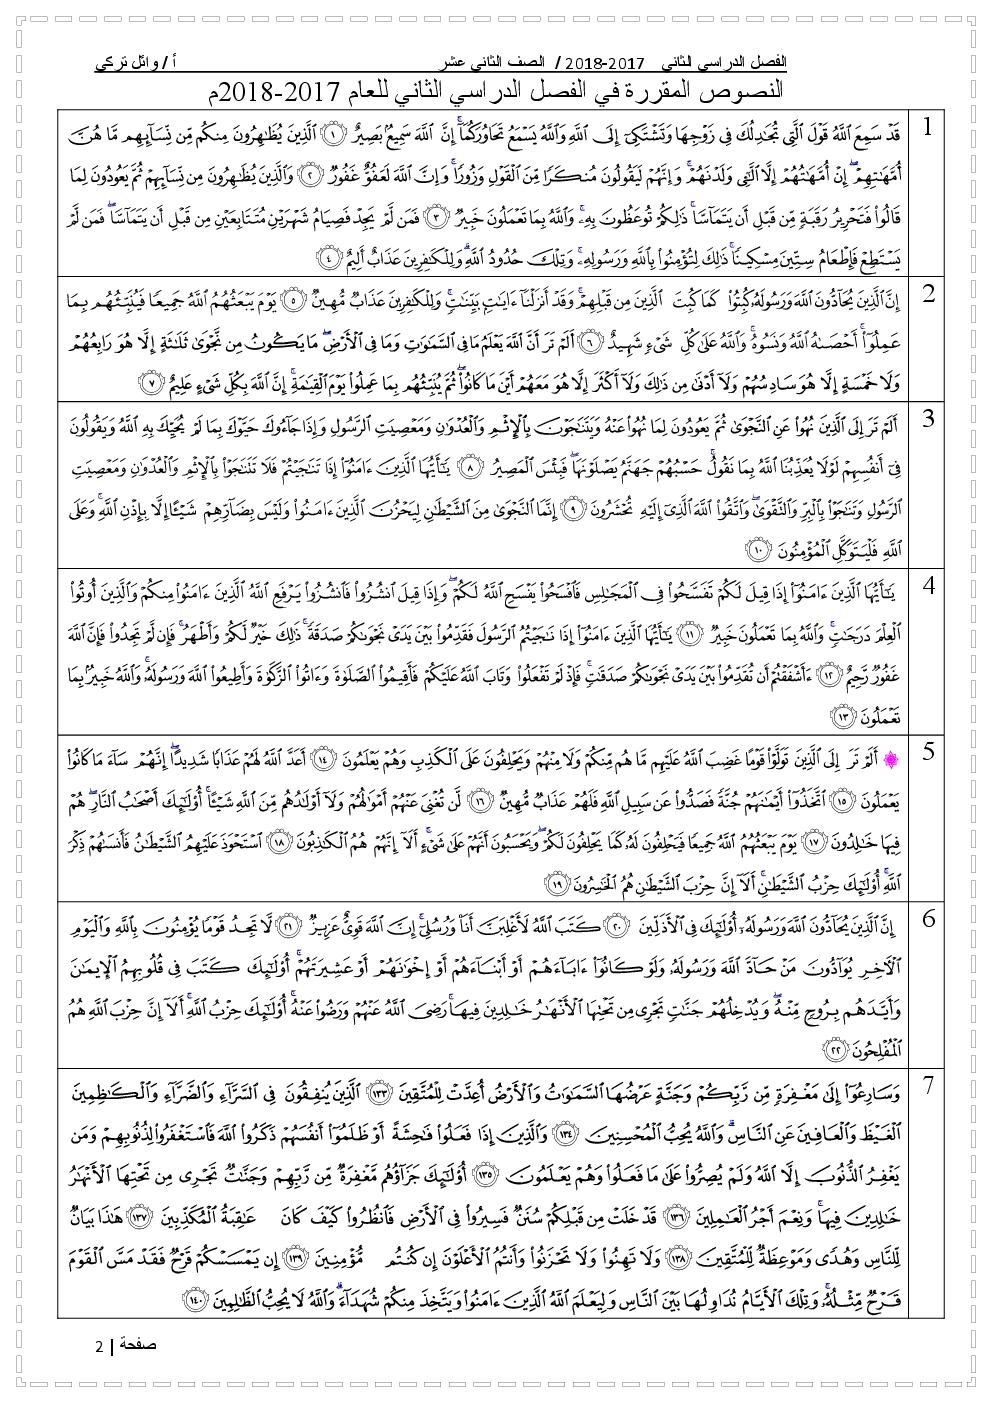 الفصل الدراسي الثاني 2017-2018 / الصف الثاني عشر أ / وائل تركي
النصوص المقررة في الفصل الدراسي الثاني للعام 2017-2018م
1
قَدْ سَمِعَ اللَّهُ قَوْلَ الَّتِي تُجَادِلُكَ فِي زَوْجِهَا وَتَشْتَكِي إِلَى اللَّهِ وَاللَّهُ يَسْمَعُ تَحَاوُرَكُمَا ۚ إِنَّ اللَّهَ سَمِيعٌ بَصِيرٌ ١ الَّذِينَ يُظَاهِرُونَ مِنكُم مِّن نِّسَائِهِم مَّا هُنَّ
أُمَّهَاتِهِمْ ۖ إِنْ أُمَّهَاتُهُمْ إِلَّا اللَّائِي وَلَدْنَهُمْ ۚ وَإِنَّهُمْ لَيَقُولُونَ مُنكَرًا مِّنَ الْقَوْلِ وَزُورًا ۚ وَإِنَّ اللَّهَ لَعَفُوٌّ غَفُورٌ ٢ وَالَّذِينَ يُظَاهِرُونَ مِن نِّسَائِهِمْ ثُمَّ يَعُودُونَ لِمَا
قَالُوا فَتَحْرِيرُ رَقَبَةٍ مِّن قَبْلِ أَن يَتَمَاسَّا ۚ ذَلِكُمْ تُوعَظُونَ بِهِ ۚ وَاللَّهُ بِمَا تَعْمَلُونَ خَبِيرٌ ٣ فَمَن لَّمْ يَجِدْ فَصِيَامُ شَهْرَيْنِ مُتَتَابِعَيْنِ مِن قَبْلِ أَن يَتَمَاسَّا ۖ فَمَن لَّمْ
يَسْتَطِعْ فَإِطْعَامُ سِتِّينَ مِسْكِينًا ۚ ذَلِكَ لِتُؤْمِنُوا بِاللَّهِ وَرَسُولِهِ ۚ وَتِلْكَ حُدُودُ اللَّهِ ۗ وَلِلْكَافِرِينَ عَذَابٌ أَلِيمٌ ٤
2
إِنَّ الَّذِينَ يُحَادُّونَ اللَّهَ وَرَسُولَهُ كُبِتُوا كَمَا كُبِتَ الَّذِينَ مِن قَبْلِهِمْ ۚ وَقَدْ أَنزَلْنَا آيَاتٍ بَيِّنَاتٍ ۚ وَلِلْكَافِرِينَ عَذَابٌ مُّهِينٌ ٥ يَوْمَ يَبْعَثُهُمُ اللَّهُ جَمِيعًا فَيُنَبِّئُهُم بِمَا
عَمِلُوا ۚ أَحْصَاهُ اللَّهُ وَنَسُوهُ ۚ وَاللَّهُ عَلَى كُلِّ شَيْءٍ شَهِيدٌ ٦ أَلَمْ تَرَ أَنَّ اللَّهَ يَعْلَمُ مَا فِي السَّمَاوَاتِ وَمَا فِي الْأَرْضِ ۖ مَا يَكُونُ مِن نَّجْوَى ثَلَاثَةٍ إِلَّا هُوَ رَابِعُهُمْ
وَلَا خَمْسَةٍ إِلَّا هُوَ سَادِسُهُمْ وَلَا أَدْنَى مِن ذَلِكَ وَلَا أَكْثَرَ إِلَّا هُوَ مَعَهُمْ أَيْنَ مَا كَانُوا ۖ ثُمَّ يُنَبِّئُهُم بِمَا عَمِلُوا يَوْمَ الْقِيَامَةِ ۚ إِنَّ اللَّهَ بِكُلِّ شَيْءٍ عَلِيمٌ ٧
3
أَلَمْ تَرَ إِلَى الَّذِينَ نُهُوا عَنِ النَّجْوَى ثُمَّ يَعُودُونَ لِمَا نُهُوا عَنْهُ وَيَتَنَاجَوْنَ بِالْإِثْمِ وَالْعُدْوَانِ وَمَعْصِيَتِ الرَّسُولِ وَإِذَا جَاءُوكَ حَيَّوْكَ بِمَا لَمْ يُحَيِّكَ بِهِ اللَّهُ وَيَقُولُونَ
فِي أَنفُسِهِمْ لَوْلَا يُعَذِّبُنَا اللَّهُ بِمَا نَقُولُ ۚ حَسْبُهُمْ جَهَنَّمُ يَصْلَوْنَهَا ۖ فَبِئْسَ الْمَصِيرُ ٨ يَا أَيُّهَا الَّذِينَ آمَنُوا إِذَا تَنَاجَيْتُمْ فَلَا تَتَنَاجَوْا بِالْإِثْمِ وَالْعُدْوَانِ وَمَعْصِيَتِ
الرَّسُولِ وَتَنَاجَوْا بِالْبِرِّ وَالتَّقْوَى ۖ وَاتَّقُوا اللَّهَ الَّذِي إِلَيْهِ تُحْشَرُونَ ٩ إِنَّمَا النَّجْوَى مِنَ الشَّيْطَانِ لِيَحْزُنَ الَّذِينَ آمَنُوا وَلَيْسَ بِضَارِّهِمْ شَيْئًا إِلَّا بِإِذْنِ اللَّهِ ۚ وَعَلَى
اللَّهِ فَلْيَتَوَكَّلِ الْمُؤْمِنُونَ ١٠
4
يَا أَيُّهَا الَّذِينَ آمَنُوا إِذَا قِيلَ لَكُمْ تَفَسَّحُوا فِي الْمَجَالِسِ فَافْسَحُوا يَفْسَحِ اللَّهُ لَكُمْ ۖ وَإِذَا قِيلَ انشُزُوا فَانشُزُوا يَرْفَعِ اللَّهُ الَّذِينَ آمَنُوا مِنكُمْ وَالَّذِينَ أُوتُوا
الْعِلْمَ دَرَجَاتٍ ۚ وَاللَّهُ بِمَا تَعْمَلُونَ خَبِيرٌ ١١ يَا أَيُّهَا الَّذِينَ آمَنُوا إِذَا نَاجَيْتُمُ الرَّسُولَ فَقَدِّمُوا بَيْنَ يَدَيْ نَجْوَاكُمْ صَدَقَةً ۚ ذَلِكَ خَيْرٌ لَّكُمْ وَأَطْهَرُ ۚ فَإِن لَّمْ تَجِدُوا فَإِنَّ اللَّهَ
غَفُورٌ رَّحِيمٌ ١٢ أَأَشْفَقْتُمْ أَن تُقَدِّمُوا بَيْنَ يَدَيْ نَجْوَاكُمْ صَدَقَاتٍ ۚ فَإِذْ لَمْ تَفْعَلُوا وَتَابَ اللَّهُ عَلَيْكُمْ فَأَقِيمُوا الصَّلَاةَ وَآتُوا الزَّكَاةَ وَأَطِيعُوا اللَّهَ وَرَسُولَهُ ۚ وَاللَّهُ خَبِيرٌ بِمَا
تَعْمَلُونَ ١٣
5
أَلَمْ تَرَ إِلَى الَّذِينَ تَوَلَّوْا قَوْمًا غَضِبَ اللَّهُ عَلَيْهِم مَّا هُم مِّنكُمْ وَلَا مِنْهُمْ وَيَحْلِفُونَ عَلَى الْكَذِبِ وَهُمْ يَعْلَمُونَ ١٤ أَعَدَّ اللَّهُ لَهُمْ عَذَابًا شَدِيدًا ۖ إِنَّهُمْ سَاءَ مَا كَانُوا
يَعْمَلُونَ ١٥ اتَّخَذُوا أَيْمَانَهُمْ جُنَّةً فَصَدُّوا عَن سَبِيلِ اللَّهِ فَلَهُمْ عَذَابٌ مُّهِينٌ ١٦ لَّن تُغْنِيَ عَنْهُمْ أَمْوَالُهُمْ وَلَا أَوْلَادُهُم مِّنَ اللَّهِ شَيْئًا ۚ أُولَئِكَ أَصْحَابُ النَّارِ ۖ هُمْ
فِيهَا خَالِدُونَ ١٧ يَوْمَ يَبْعَثُهُمُ اللَّهُ جَمِيعًا فَيَحْلِفُونَ لَهُ كَمَا يَحْلِفُونَ لَكُمْ ۖ وَيَحْسَبُونَ أَنَّهُمْ عَلَى شَيْءٍ ۚ أَلَا إِنَّهُمْ هُمُ الْكَاذِبُونَ ١٨ اسْتَحْوَذَ عَلَيْهِمُ الشَّيْطَانُ فَأَنسَاهُمْ ذِكْرَ
اللَّهِ ۚ أُولَئِكَ حِزْبُ الشَّيْطَانِ ۚ أَلَا إِنَّ حِزْبَ الشَّيْطَانِ هُمُ الْخَاسِرُونَ ١٩
6
إِنَّ الَّذِينَ يُحَادُّونَ اللَّهَ وَرَسُولَهُ أُولَئِكَ فِي الْأَذَلِّينَ ٢٠ كَتَبَ اللَّهُ لَأَغْلِبَنَّ أَنَا وَرُسُلِي ۚ إِنَّ اللَّهَ قَوِيٌّ عَزِيزٌ ٢١ لَّا تَجِدُ قَوْمًا يُؤْمِنُونَ بِاللَّهِ وَالْيَوْمِ
الْآخِرِ يُوَادُّونَ مَنْ حَادَّ اللَّهَ وَرَسُولَهُ وَلَوْ كَانُوا آبَاءَهُمْ أَوْ أَبْنَاءَهُمْ أَوْ إِخْوَانَهُمْ أَوْ عَشِيرَتَهُمْ ۚ أُولَئِكَ كَتَبَ فِي قُلُوبِهِمُ الْإِيمَانَ
وَأَيَّدَهُم بِرُوحٍ مِّنْهُ ۖ وَيُدْخِلُهُمْ جَنَّاتٍ تَجْرِي مِن تَحْتِهَا الْأَنْهَارُ خَالِدِينَ فِيهَا ۚ رَضِيَ اللَّهُ عَنْهُمْ وَرَضُوا عَنْهُ ۚ أُولَئِكَ حِزْبُ اللَّهِ ۚ أَلَا إِنَّ حِزْبَ اللَّهِ هُمُ
الْمُفْلِحُونَ ٢٢
7
وَسَارِعُوا إِلَى مَغْفِرَةٍ مِّن رَّبِّكُمْ وَجَنَّةٍ عَرْضُهَا السَّمَاوَاتُ وَالْأَرْضُ أُعِدَّتْ لِلْمُتَّقِينَ ١٣٣ الَّذِينَ يُنفِقُونَ فِي السَّرَّاءِ وَالضَّرَّاءِ وَالْكَاظِمِينَ
الْغَيْظَ وَالْعَافِينَ عَنِ النَّاسِ ۗ وَاللَّهُ يُحِبُّ الْمُحْسِنِينَ ١٣٤ وَالَّذِينَ إِذَا فَعَلُوا فَاحِشَةً أَوْ ظَلَمُوا أَنفُسَهُمْ ذَكَرُوا اللَّهَ فَاسْتَغْفَرُوا لِذُنُوبِهِمْ وَمَن
يَغْفِرُ الذُّنُوبَ إِلَّا اللَّهُ وَلَمْ يُصِرُّوا عَلَى مَا فَعَلُوا وَهُمْ يَعْلَمُونَ ١٣٥ أُولَئِكَ جَزَاؤُهُم مَّغْفِرَةٌ مِّن رَّبِّهِمْ وَجَنَّاتٌ تَجْرِي مِن تَحْتِهَا الْأَنْهَارُ
خَالِدِينَ فِيهَا ۚ وَنِعْمَ أَجْرُ الْعَامِلِينَ ١٣٦ قَدْ خَلَتْ مِن قَبْلِكُمْ سُنَنٌ فَسِيرُوا فِي الْأَرْضِ فَانظُرُوا كَيْفَ كَانَ عَاقِبَةُ الْمُكَذِّبِينَ ١٣٧ هَذَا بَيَانٌ
لِّلنَّاسِ وَهُدًى وَمَوْعِظَةٌ لِّلْمُتَّقِينَ ١٣٨ وَلَا تَهِنُوا وَلَا تَحْزَنُوا وَأَنتُمُ الْأَعْلَوْنَ إِن كُنتُم مُّؤْمِنِينَ ١٣٩ إِن يَمْسَسْكُمْ قَرْحٌ فَقَدْ مَسَّ الْقَوْمَ
قَرْحٌ مِّثْلُهُ ۚ وَتِلْكَ الْأَيَّامُ نُدَاوِلُهَا بَيْنَ النَّاسِ وَلِيَعْلَمَ اللَّهُ الَّذِينَ آمَنُوا وَيَتَّخِذَ مِنكُمْ شُهَدَاءَ ۗ وَاللَّهُ لَا يُحِبُّ الظَّالِمِينَ ١٤٠
صفحة | 2